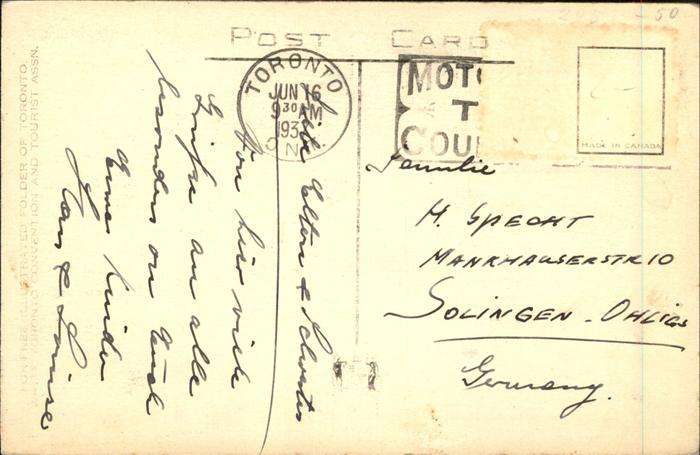 POST CARD
TORONTO
JUN 16
9 30 AM
193
ONT.
MOTO
T
COU
MADE IN CANADA
Familie
H. SPECHT
MANKHAUSERSTR 10
SOLINGEN - OHLIGS
Germany.
Liebe Eltern & Schwester
Von hier viele
Grüße an alle
besonders an Euch
Eure Kinder
Hans & Louise
FOR FREE ILLUSTRATED FOLDER OF TORONTO,
TORONTO CONVENTION AND TOURIST ASSN.